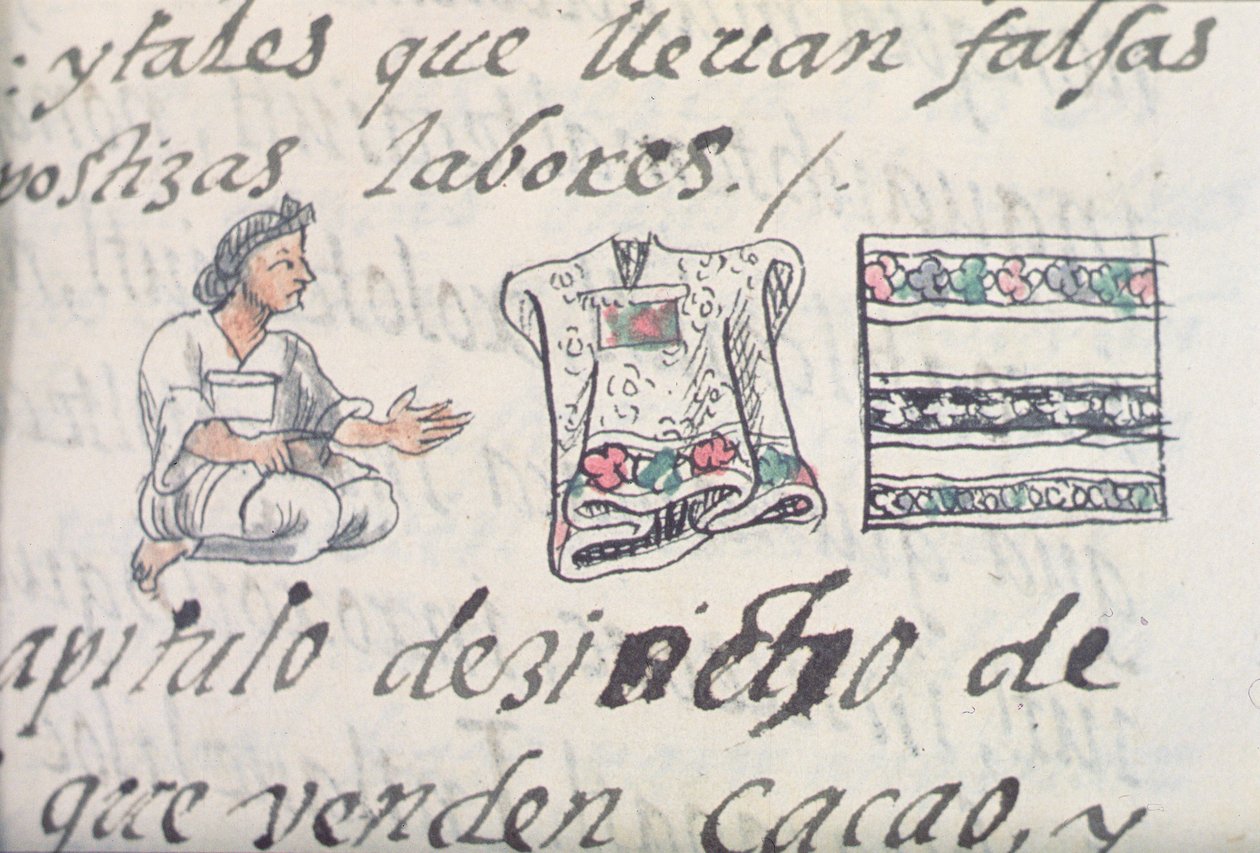 : y tales que lleuan falsas
postizas labores. /.
apitulo deziocho de
que venden Cacao, y